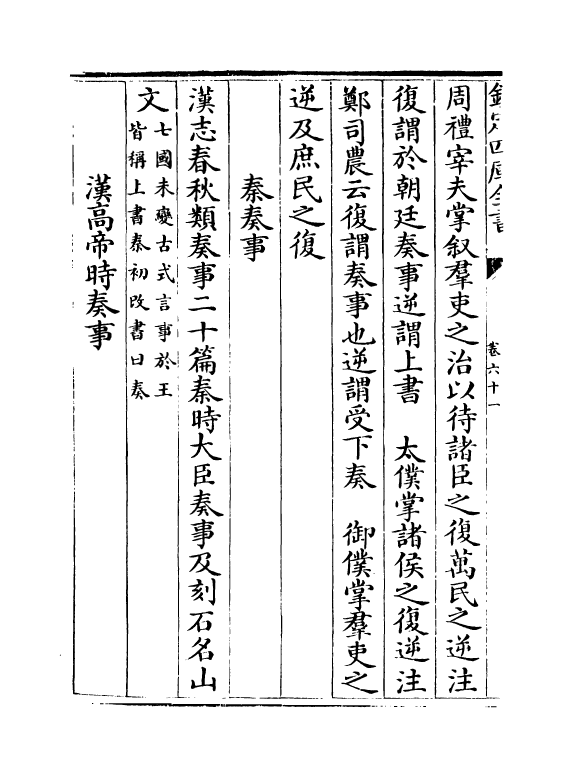 欽定四庫全書
卷六十一
周禮宰夫掌叙羣吏之治以待諸臣之復萬民之逆注
復謂於朝廷奏事逆謂上書　太僕掌諸侯之復逆注
鄭司農云復謂奏事也逆謂受下奏　御僕掌羣吏之
逆及庶民之復
秦奏事
漢志春秋類奏事二十篇秦時大臣奏事及刻石名山
文
七國未變古式言事於王
皆稱上書秦初改書曰奏
漢高帝時奏事